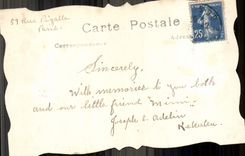 51 Rue Pigalle
Paris.
Carte Postale
Correspondance
Adresse
25
Sincerely,
With memories to you both
and our little friend
Joseph &